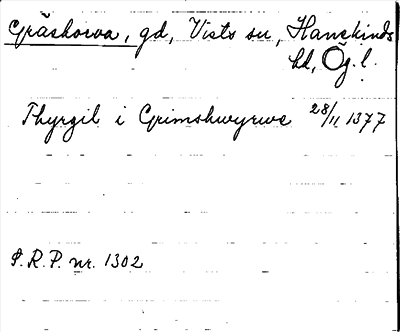 Gräskorva, gd, Vists sn, Hanekinds
hd, Ög. l.
Thyrgil i Grimshwyrwe 28/11 1377
S.R.P. nr. 1302